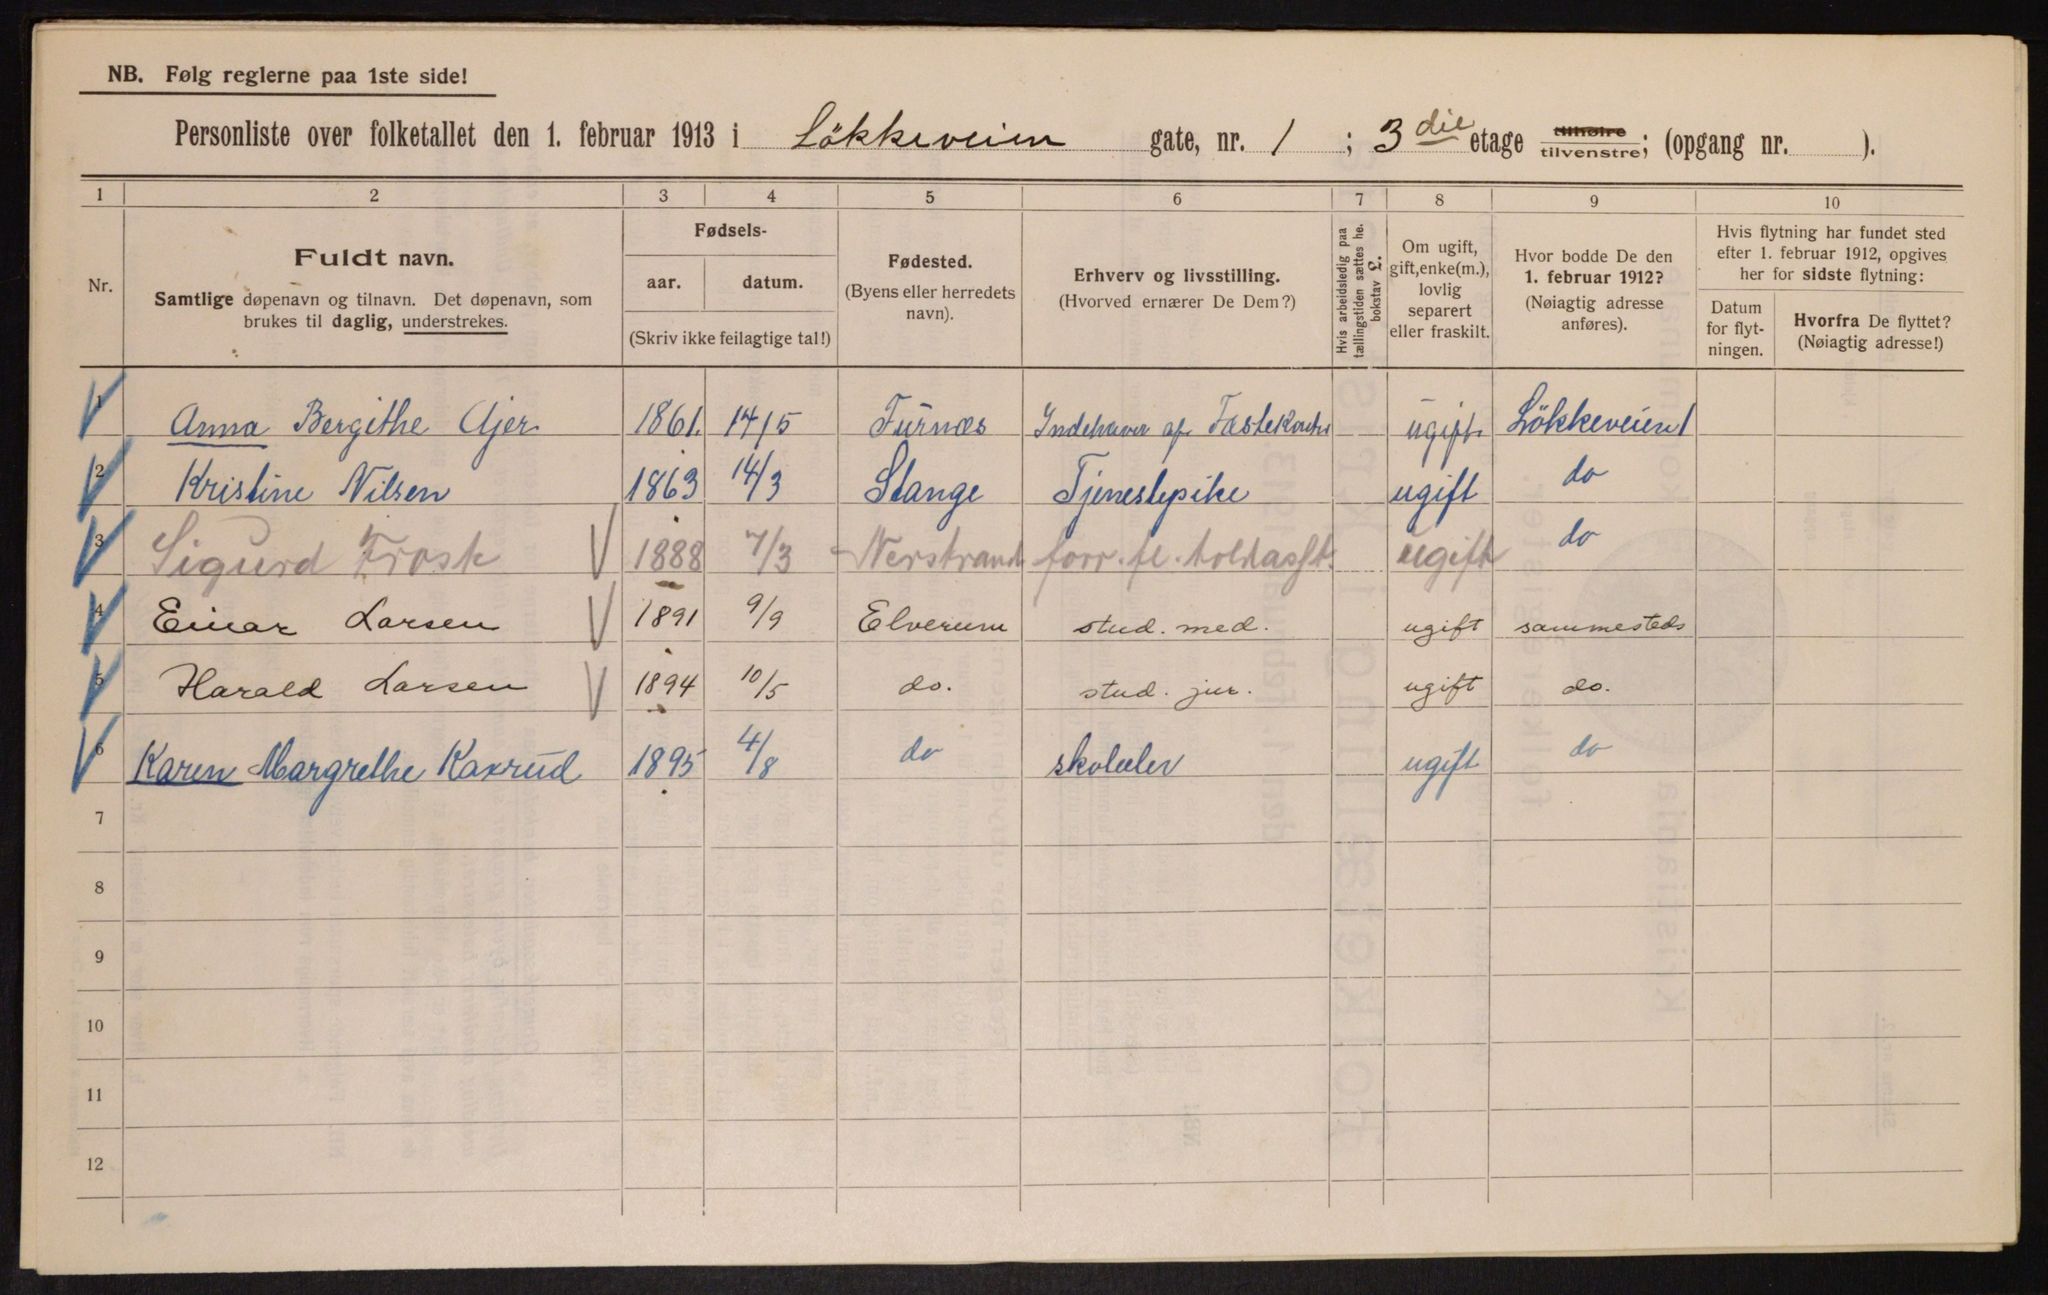 NB. Følg reglerne paa 1ste side!
Personliste over folketallet den 1. februar 1913 i Lökkeveien gate, nr. 1 ; 3die etage tilhøire tilvenstre; (opgang nr. ).
1 2 3 4 5 6 7 8 9 10
Nr.
Fuldt navn.
Samtlige døpenavn og tilnavn. Det døpenavn, som
brukes til daglig, understrekes.
Fødsels-
aar. datum.
(Skriv ikke feilagtige tal!)
Fødested.
(Byens eller herredets
navn).
Erhverv og livsstilling.
(Hvorved ernærer De Dem?)
Hvis arbeidsledig paa
tællingstiden sættes he.
bokstav L.
Om ugift,
gift, enke(m.),
lovlig
separert
eller fraskilt.
Hvor bodde De den
1. februar 1912?
(Nøiagtig adresse
anføres).
Hvis flytning har fundet sted
efter 1. februar 1912, opgives
her for sidste flytning:
Datum
for flyt-
ningen.
Hvorfra De flyttet?
(Nøiagtig adresse!)
1 Anna Bergithe Ajer 1861. 14/5 Furnæs Indehaver af ugift. Lökkeveien 1
2 Kristine Nilsen 1863 14/3 Stange Tjenestepike ugift do
3 Sigurd Frost 1888 7/3 Nerstrand forr. fl. toldasst. ugift do
4 Einar Larsen 1891 9/9 Elverum stud. med. ugift sammesteds
5 Harald Larsen 1894 10/5 do. stud. jur. ugift do.
6 Karen Margrethe Kaxrud 1895 4/8 do skoleelev ugift do
7
8
9
10
11
12